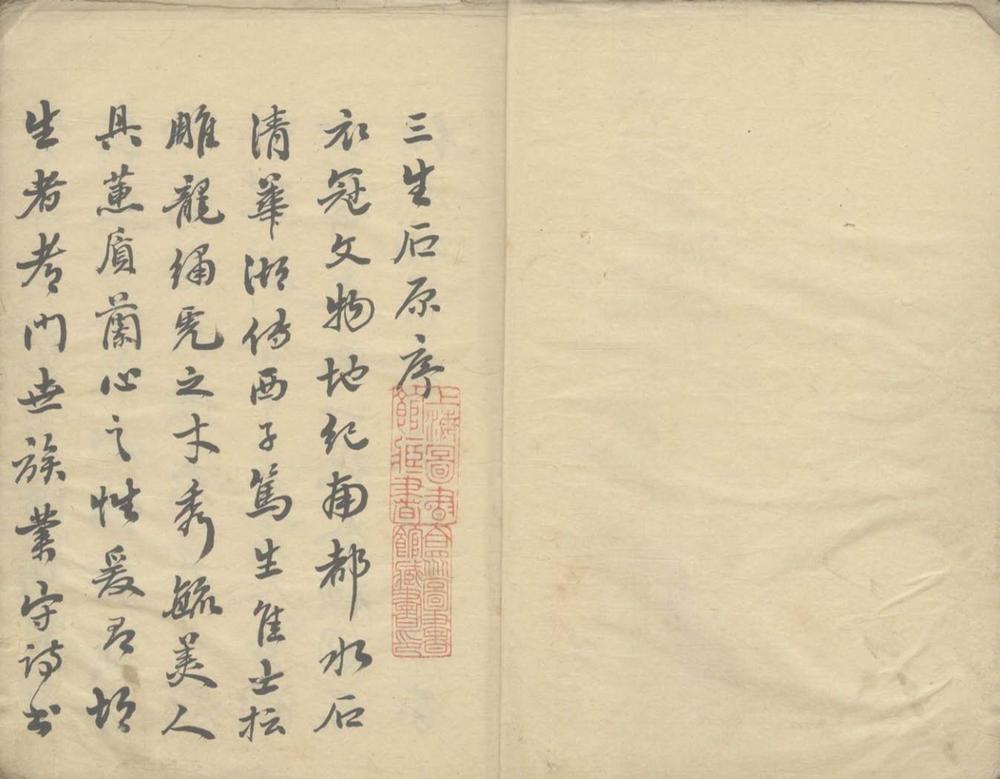 三生石原序
衣冠文物地紀南都水石
清華湖傳西子篤生佳士
雕龍繡虎之才秀毓美人
具蕙質蘭心之性爰有
生者門世族業守詩書
上海圖書
館藏書
圖書
館藏書印